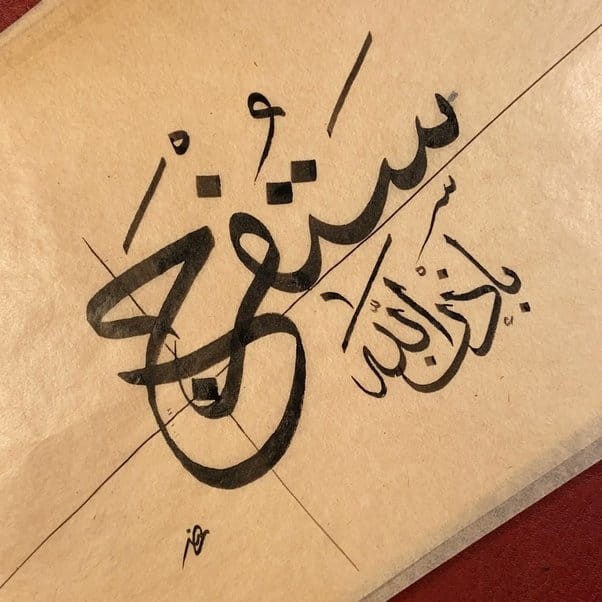 سَتُفرَجْ
بإذن الله